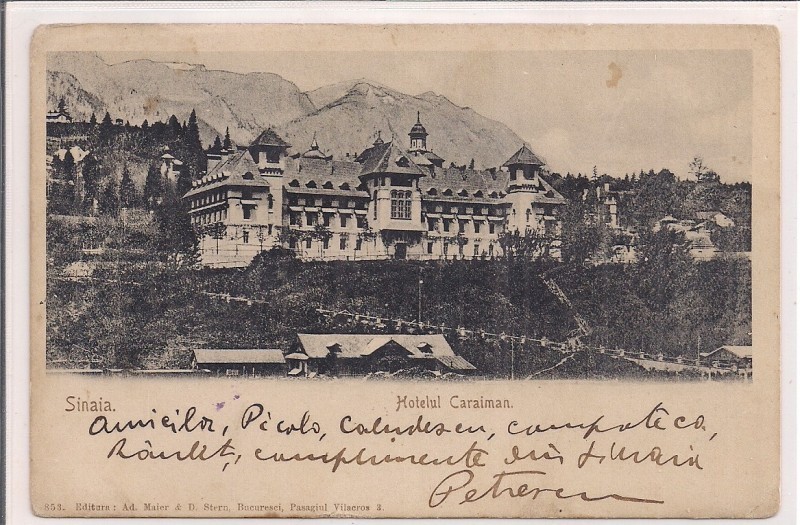 Sinaia. Hotelul Caraiman.
Amicilor, Picolo, Caludescu, compoteca,
complimente din Sinaia
Petrescu
853. Editura: Ad. Maier & D. Stern, Bucuresci, Pasagiul Vilacros 3.